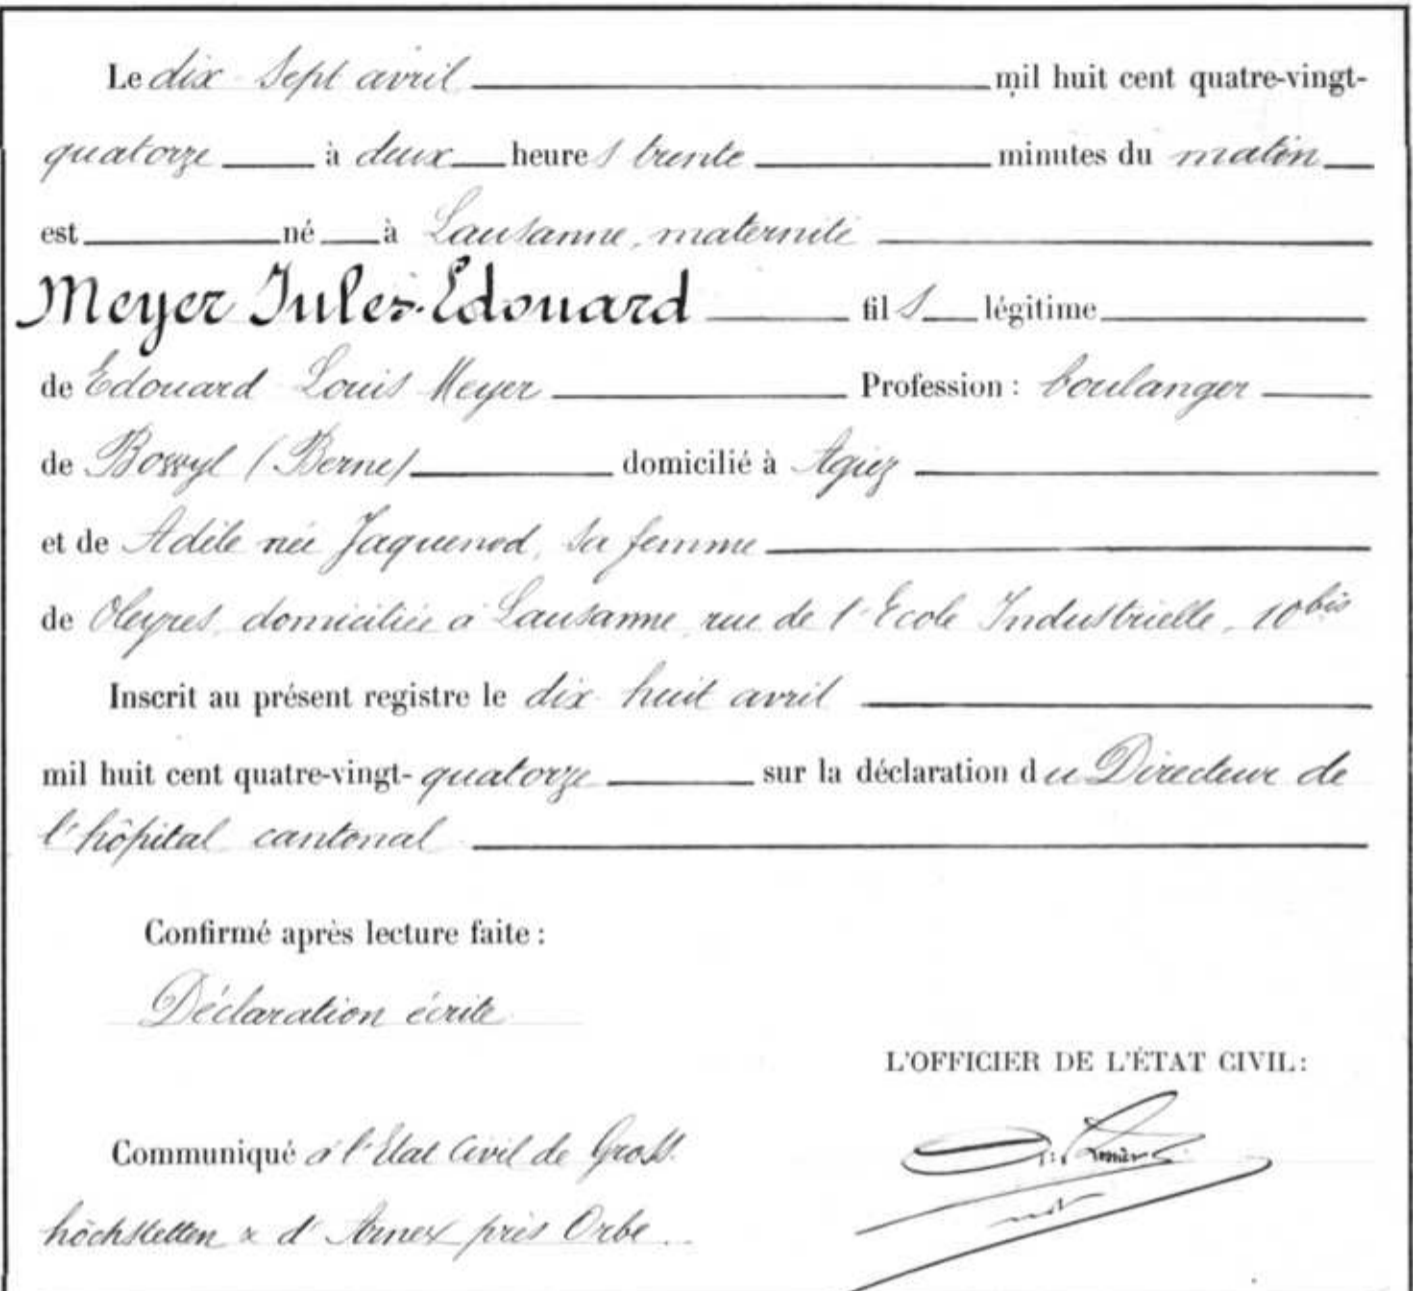 Le dix Sept avril mil huit cent quatre-vingt-
quatorze à deux heures trente minutes du matin
est né à Lausanne, maternité
Meyer Jules-Edouard fils légitime
de Edouard Louis Meyer Profession : boulanger
de Bowyl (Berne) domicilié à Agiez
et de Adèle née Jaquenod, sa femme
de Oleyres, domiciliée à Lausanne, rue de l'Ecole Industrielle, 10bis
Inscrit au présent registre le dix-huit avril
mil huit cent quatre-vingt-quatorze sur la déclaration du Directeur de
l'hôpital cantonal
Confirmé après lecture faite :
Déclaration écrite
L'OFFICIER DE L'ÉTAT CIVIL:
Communiqué à l'Etat Civil de Gross
höchstetten & d'Arnex près Orbe